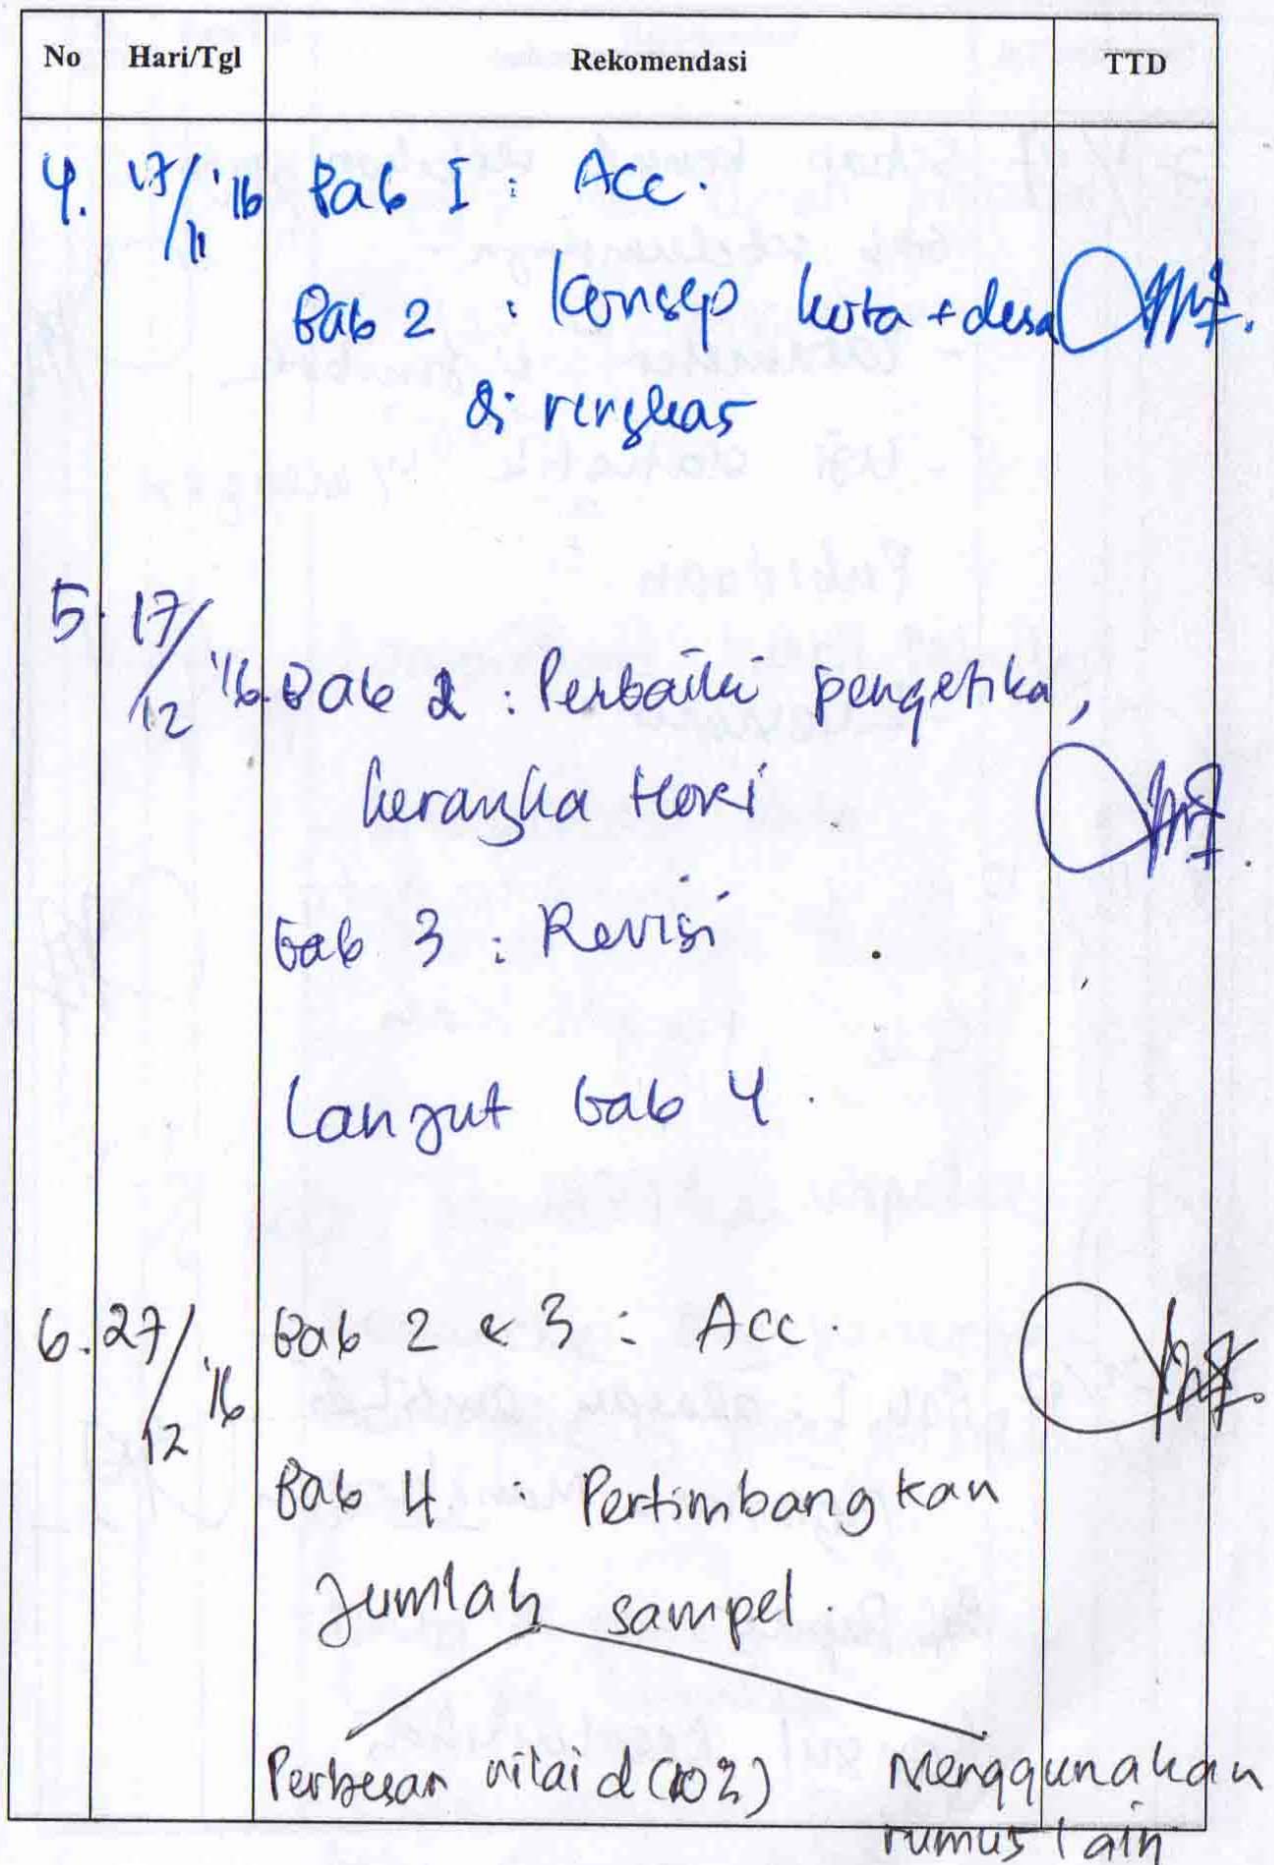 No Hari/Tgl Rekomendasi TTD
4. 17/11 '16 Bab I : Acc.
Bab 2 : Konsep kota + desa
di ringkas
5. 17/12 '16. Bab 2 : Perbaiki pengetika,
kerangka teori
Bab 3 : Revisi
Lanjut bab 4.
6. 27/12 '16 Bab 2 & 3 : Acc.
Bab 4 : Pertimbangkan
Jumlah sampel.
Perbesar nilai d (10%) Menggunakan
rumus lain